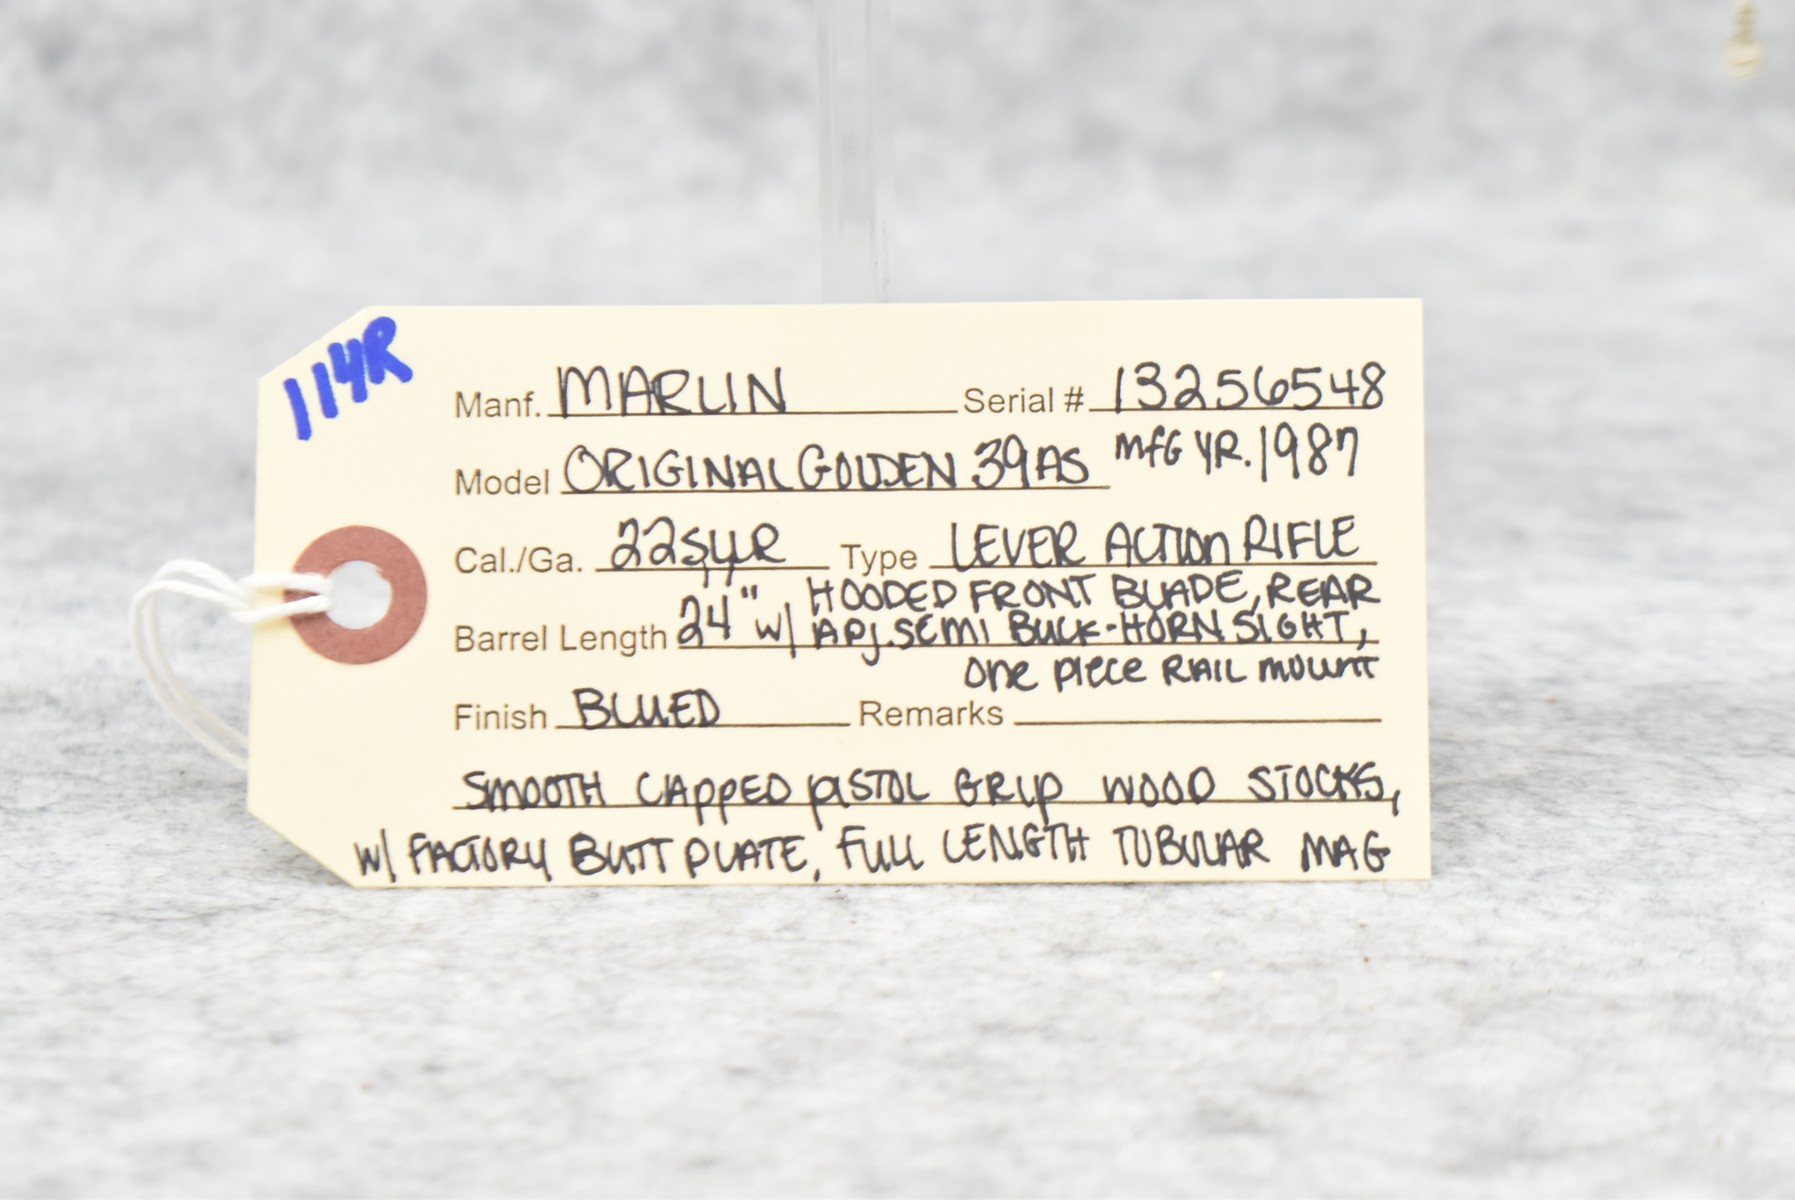 114R
Manf. MARLIN Serial # 13256548
Model ORIGINAL GOLDEN 39AS MFG YR. 1987
Cal./Ga. 22SLLR Type LEVER ACTION RIFLE
HOODED FRONT BLADE, REAR
Barrel Length 24" W/ ADJ. SEMI BUCK-HORN SIGHT,
ONE PIECE RAIL MOUNT
Finish BLUED Remarks
SMOOTH CAPPED PISTOL GRIP WOOD STOCKS,
W/ FACTORY BUTT PLATE, FULL LENGTH TUBULAR MAG